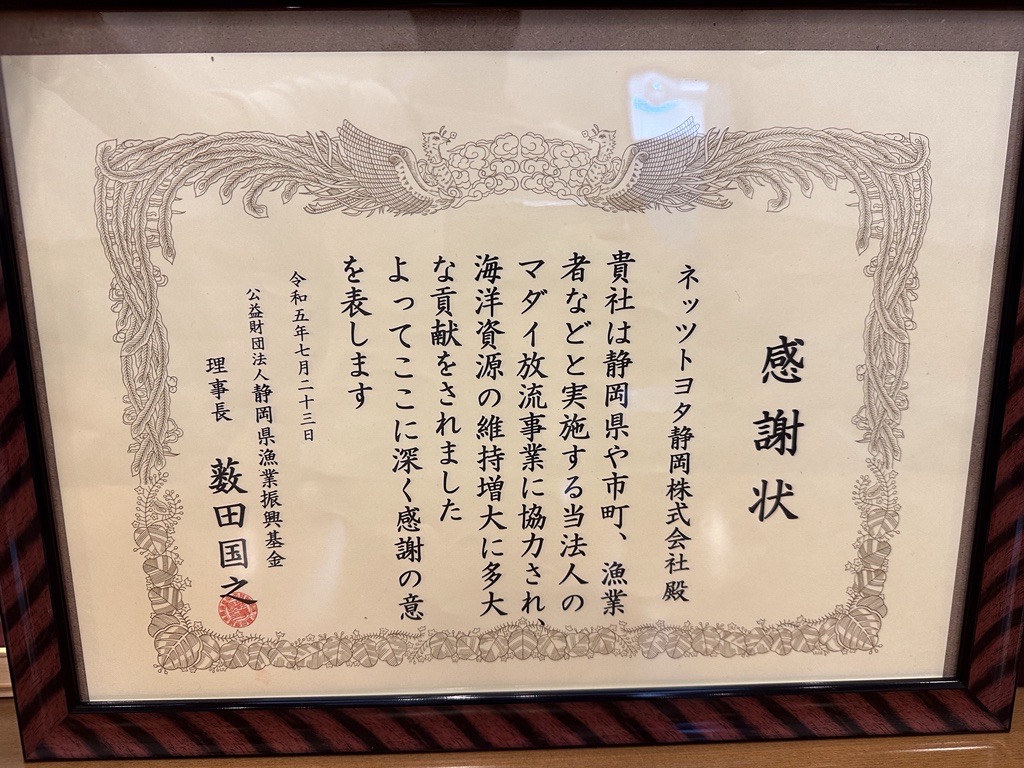 感謝状
ネッツトヨタ静岡株式会社 殿
貴社は静岡県や市町、漁業
者などと実施する当法人の
マダイ放流事業に協力され、
海洋資源の維持増大に多大
な貢献をされました
よってここに深く感謝の意
を表します
令和五年七月二十三日
公益財団法人 静岡県漁業振興基金
理事長 薮田国之